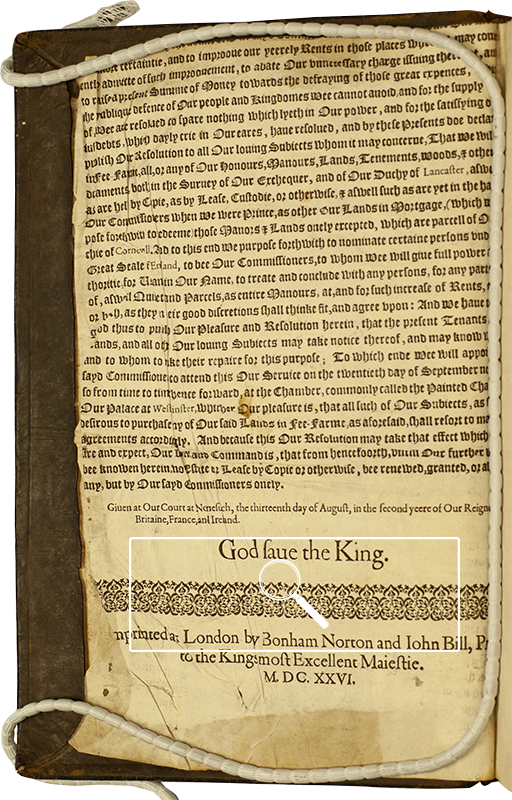 more certaintie, and to improoue our yeerely Rents in those places
admitte of such improouement, to abate Our vnnecessary charge issuing there
to raise present Summe of Money towards the defraying of those great expences,
the publique defence of Our people and Kingdomes Wee cannot auoid, and for the supply
of, Wee are resolued to spare nothing which lyeth in Our power, and for the satisfying
debts, which dayly crie in Our eares, haue resolued, and by these Presents doe
publish Our Resolution to all Our louing Subiects whom it may concerne, That We will
in Fee-Farme, all, or any of Our Honours, Manours, Lands, Tenements, Woods, &
both in the Suruey of Our Exchequer, and of Our Duchy of Lancaster,
as are held by Copie, as by Lease, Custodie, or otherwise, & aswell such as are yet in the
Our Commissioners when we were Prince, as other Our Lands in Mortgage, (which
pose forthwith to redeeme) those Manors & Lands onely excepted, which are parcell of
of Cornewall. And to this end we purpose forthwith to nominate certaine persons
Great Seale to bee Our Commissioners, to whom Wee will giue full power
thoritie, for Vs and in Our Name, to treate and conclude with any persons, for any
of, aswell Quiet and Parcels, as entire Manours, at, and for such increase of Rents,
or as they good discretions shall thinke fit, and agree vpon: And We haue
good thus to Our Pleasure and Resolution herein, that the present Tenants
Lands, and all Our louing Subiects may take notice thereof, and may know
and to whom to their repaire for this purpose; To which ende Wee will
sayd Commissioners to attend this Our Seruice on the twentieth day of September
so from time to time forward, at the Chamber, commonly called the Painted
Our Palace at Westminster, whither Our pleasure is, that all such of Our Subiects, as
desirous to purchase any of Our said Lands in Fee-Farme, as aforesaid, shall resort to
agreements accordingly. And because this Our Resolution may take that effect which
and expect, Our and Command is, that from henceforth, vntill Our further
bee knowen herein, no Estate or Lease by Copie or otherwise, bee renewed, granted, or
any, but by Our sayd Commissioners onely.
Giuen at Our Court at the thirteenth day of August, in the second yeere of Our
Britaine, France, and Ireland.
God saue the King.
at London by Bonham Norton and Iohn Bill,
to the Kings most Excellent Maiestie.
M. DC. XXVI.